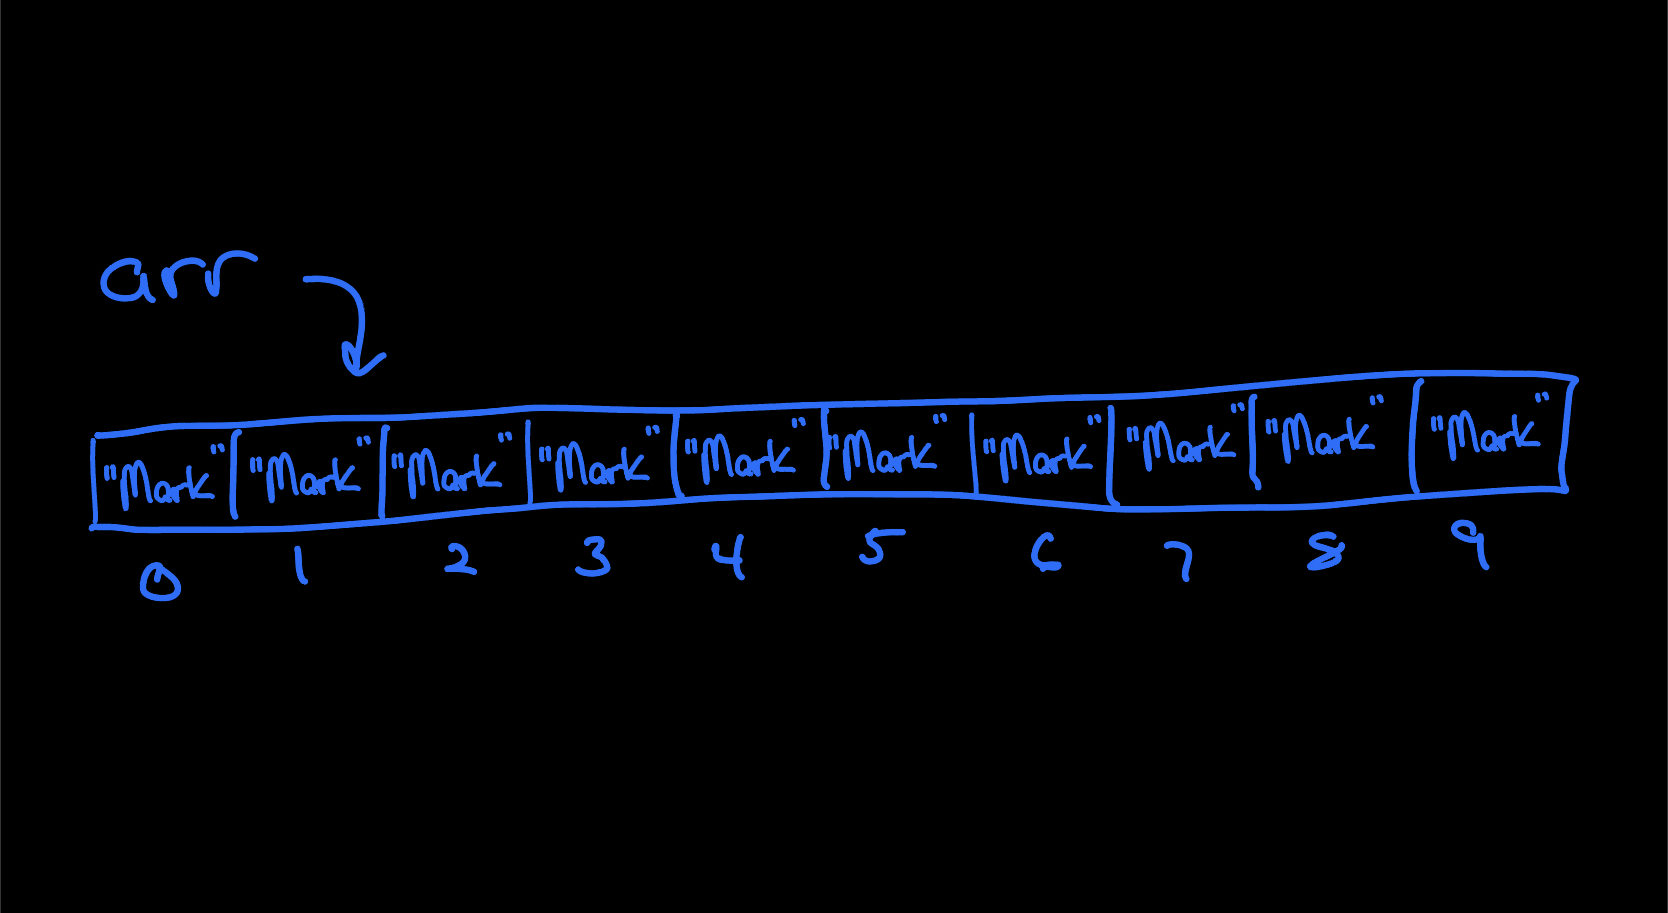 arr
"Mark" "Mark" "Mark" "Mark" "Mark" "Mark" "Mark" "Mark" "Mark" "Mark"
0 1 2 3 4 5 6 7 8 9